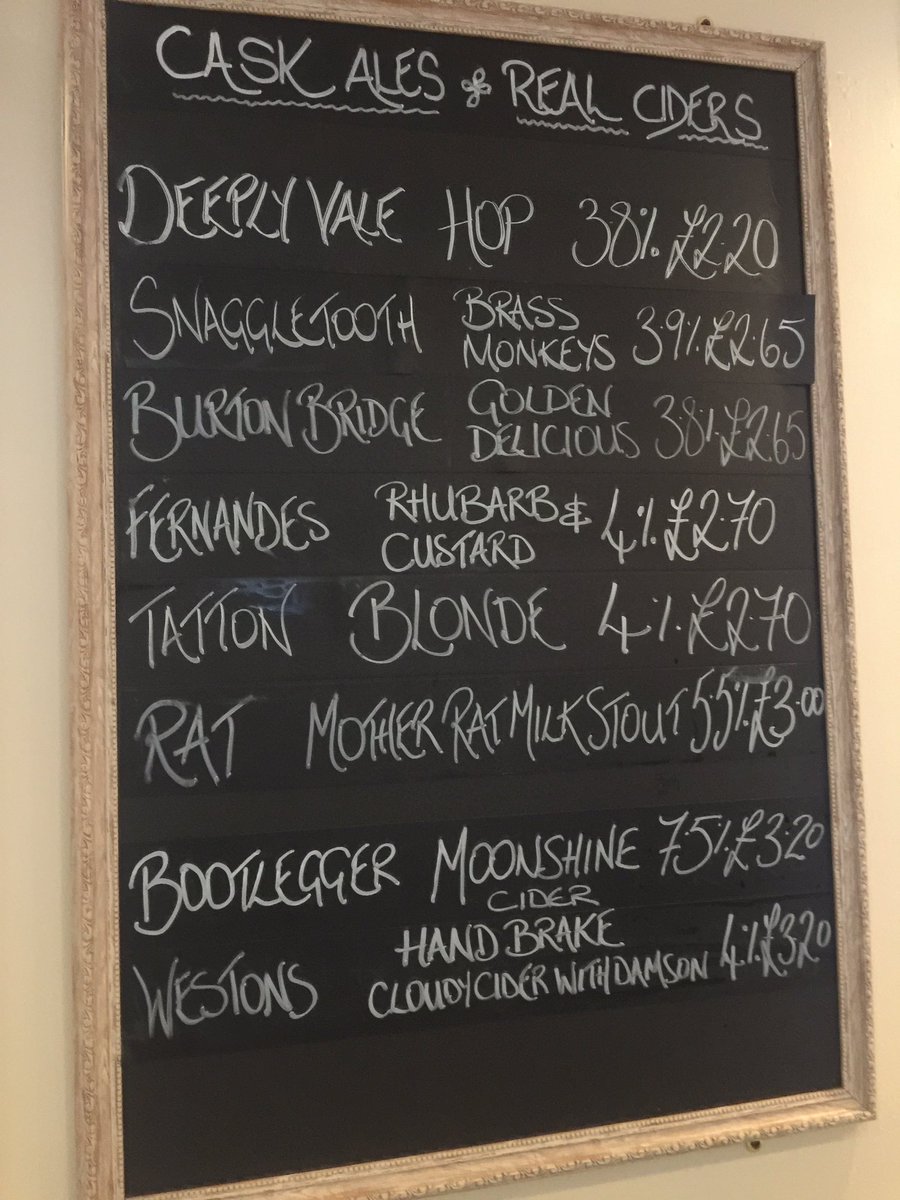 CASK ALES & REAL CIDERS
DEEPLY VALE HOP 3.8% £2.20
SNAGGLETOOTH BRASS MONKEYS 3.9% £2.65
BURTON BRIDGE GOLDEN DELICIOUS 3.8% £2.65
FERNANDES RHUBARB & CUSTARD 4% £2.70
TATTON BLONDE 4% £2.70
RAT MOTHER RAT MILK STOUT 5.5% £3.00
BOOTLEGGER MOONSHINE CIDER 7.5% £3.20
WESTONS HAND BRAKE CLOUDY CIDER WITH DAMSON 4% £3.20